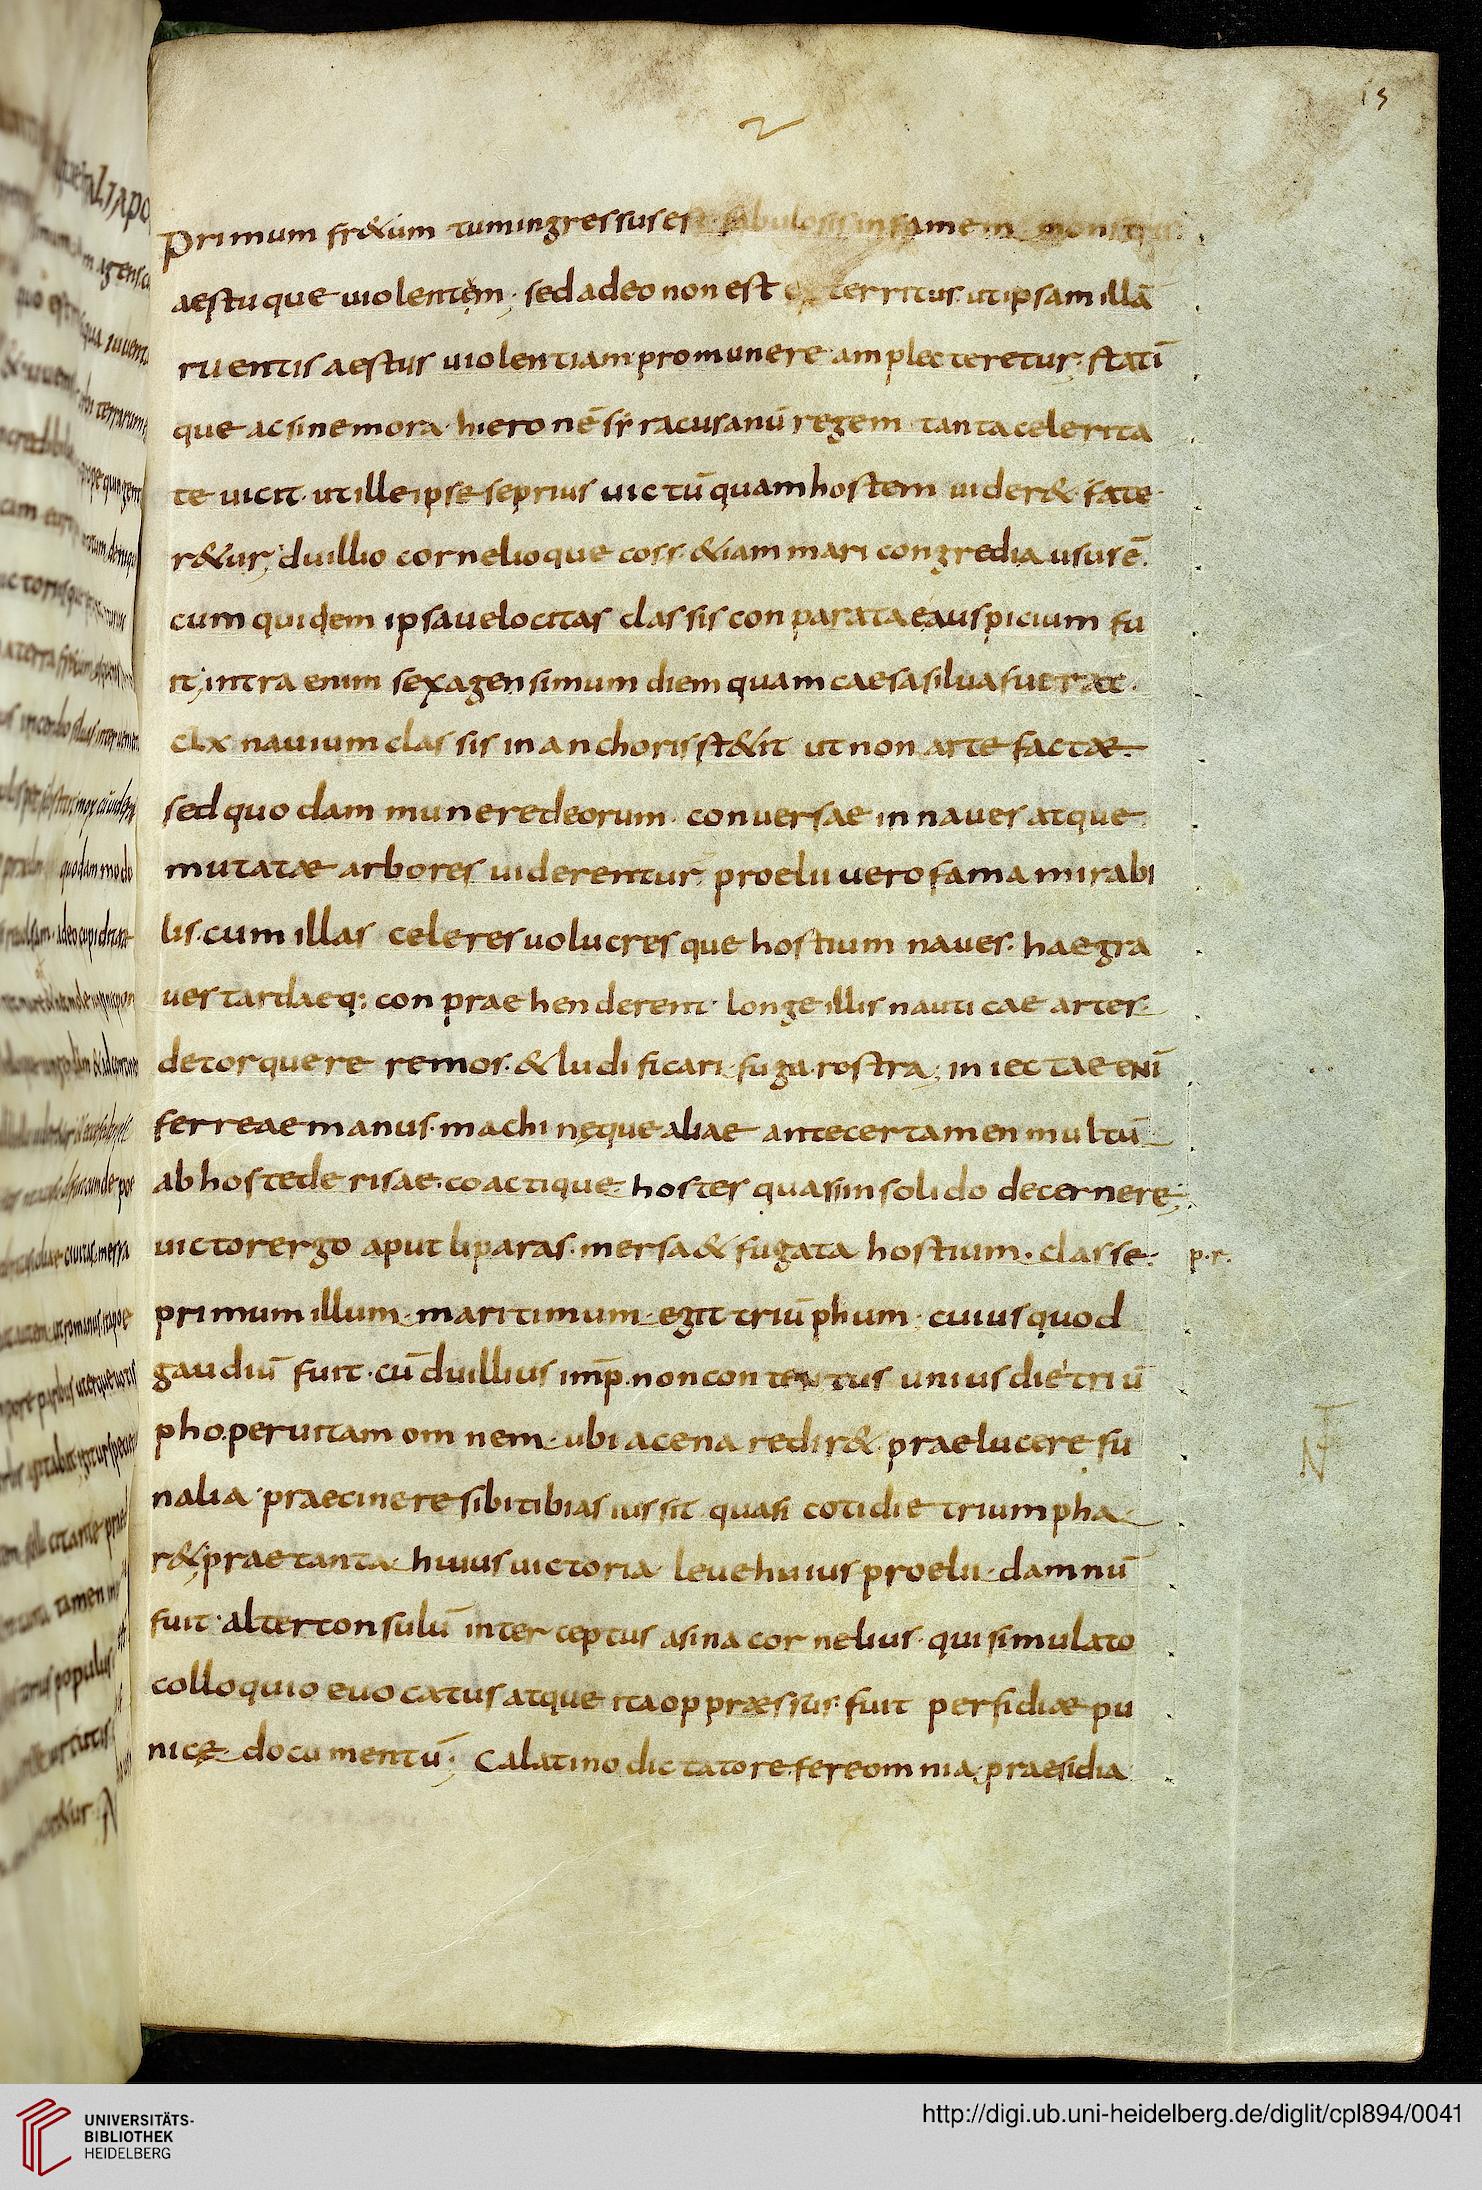 15
2
Primum fr&um tumingressusest fabulosisinfamem monstris
aestuque uiolentem; sedadeo non est exterritus. utipsamillā
ruentis aestus uiolentiam promunere amplecteretur; statī
que acsinemora hieronē syracusanū regem tantacelerita
te uicit. utilleipse seprius uictū quamhostem uider& fate
r&ur; duillio cornelioque coss. &iam mari congredia ususē.
cum quidem ipsauelocitas classis conparataeauspicium fu
it; intra enim sexagensimum diem quam caesasiluafuerat.
clx nauium classis in anchoris st&it ut non arte factae.
sed quodam muneredeorum. conuersae in naues atque
mutatae arbores uiderentur; proelii uero fama mirabi
lis. cum illas celeresuolucresque hostium naues. haegra
ues tardaeq: conprae henderent longe illis nauticae artes.
detorquere remos. & ludificari fuga rostra; iniectae enī
ferreae manus. machinęque aliae antecertamen multū
ab hostede risae. coactique hostes quasiinsolido decernere;
uictorergo aput liparas. mersa & fugata hostium. classe. p.r.
primum illum. maritimum. egit triū phum. cuiusquod
gaudiū fuit. cū duillius imp̄. non contentus unius die triū
pho. peruitam omnem. ubi acena redir& praelucere fu
nalia praecinere sibitibias iussit. quasi cotidie triumpha
r&; praetanta huius uictoria leuehuius proelii. damnū
fuit. alterconsulū interceptus asina cornelius. quisimulato
colloquio euocatus atque itaoppraessus. fuit perfidiae pu
nicę documentū; Calatino dictatore fereomnia praesidia
UNIVERSITÄTS-
BIBLIOTHEK
HEIDELBERG
http://digi.ub.uni-heidelberg.de/diglit/cpl894/0041